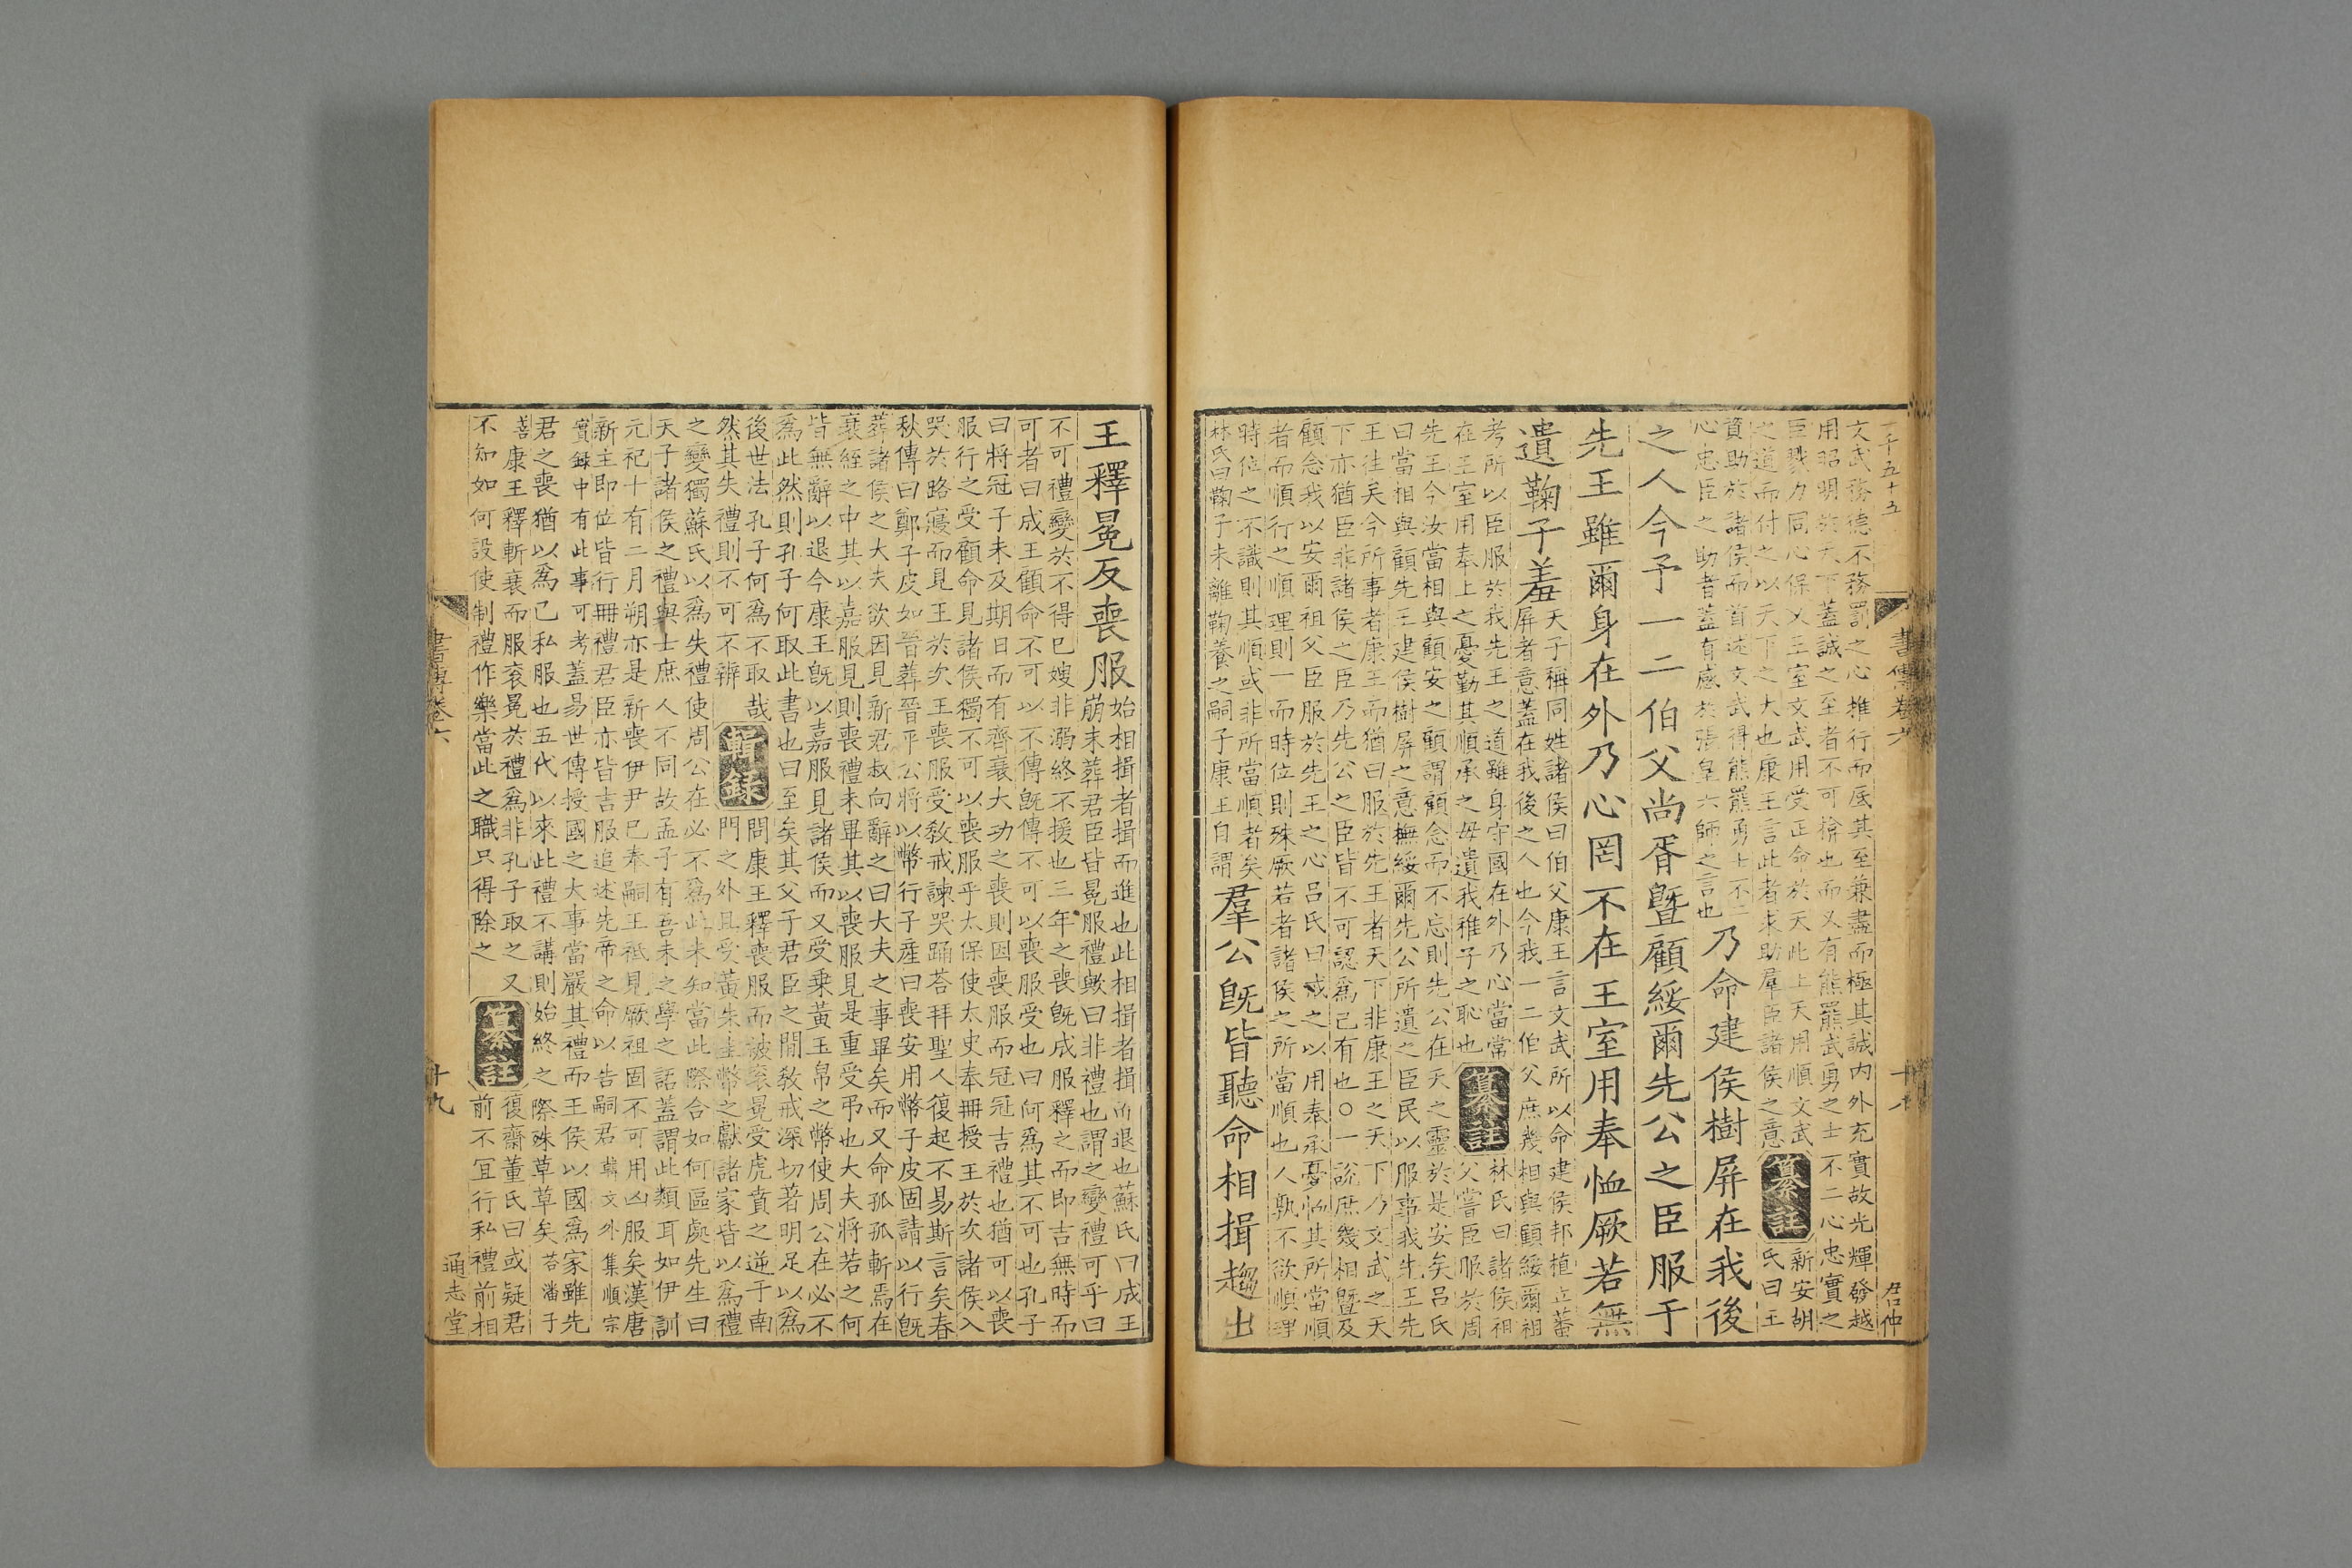 一千五十五
書傳卷六
十八
君仲
文武務德不務罰之心推行而底其至兼盡而極其誠内外充實故光輝發越
用昭明於天下蓋誠之至者不可揜也而又有熊羆武勇之士不二心忠實之
臣戮力同心保乂王室文武用受正命於天此上天用順文武
之道而付之以天下之大也康王言此者求助羣臣諸侯之意
纂註
新安胡
氏曰王
資助於諸侯而首述文武得熊羆勇士不二
心忠臣之助者蓋有感於張皇六師之言也
乃命建侯樹屏在我後
之人今予一二伯父尚胥暨顧綏爾先公之臣服于
先王雖爾身在外乃心罔不在王室用奉恤厥若無
遺鞠子羞
天子稱同姓諸侯曰伯父康王言文武所以命建侯邦植立蕃
屏者意蓋在我後之人也今我一二伯父庶幾相與顧綏爾祖
考所以臣服於我先王之道雖身守國在外乃心當常
在王室用奉上之憂勤其順承之毋遺我稚子之恥也
纂註
林氏曰諸侯祖
父嘗臣服於周
先王今汝當相與顧安之顧謂顧念而不忘則先公在天之靈於是安矣呂氏
曰當相與顧先王建侯樹屏之意撫綏爾先公所遺之臣民以服事我先王先
王往矣今所事者康王而猶曰服於先王者天下非康王之天下乃文武之天
下亦猶臣非諸侯之臣乃先公之臣皆不可認爲己有也○一說庶幾相暨及
顧念我以安爾祖父臣服於先王之心呂氏曰戒之以用奉承憂恤其所當順
者而順行之順理則一而時位則殊厥若者諸侯之所當順也人孰不欲順理
時位之不識則其順或非所當順者矣
林氏曰鞠子未離鞠養之嗣子康王自謂
羣公旣皆聽命相揖趨出
王釋冕反喪服
始相揖者揖而進也此相揖者揖而退也蘇氏曰成王
崩未葬君臣皆冕服禮歟曰非禮也謂之變禮可乎曰
不可禮變於不得已嫂非溺終不援也三年之喪旣成服釋之而即吉無時而
可者曰成王顧命不可以不傳旣傳不可以喪服受也曰何爲其不可也孔子
曰將冠子未及期日而有齊衰大功之喪則因喪服而冠冠吉禮也猶可以喪
服行之受顧命見諸侯獨不可以喪服乎太保使太史奉冊授王於次諸侯入
哭於路寢而見王於次王喪服受敎戒諫哭踊荅拜聖人復起不易斯言矣春
秋傳曰鄭子皮如晉葬晉平公將以幣行子產曰喪安用幣子皮固請以行旣
葬諸侯之大夫欲因見新君叔向辭之曰大夫之事畢矣而又命孤孤斬焉在
衰絰之中其以嘉服見則喪禮未畢其以喪服見是重受弔也大夫將若之何
皆無辭以退今康王旣以嘉服見諸侯而又受乗黃玉帛之幣使周公在必不
爲此然則孔子何取此書也曰至矣其父子君臣之閒敎戒深切著明足以爲
後世法孔子何爲不取哉
然其失禮則不可不辨
輯録
問康王釋喪服而被衮冕受虎賁之逆于南
門之外且受黃朱圭幣之獻諸家皆以爲禮
之變獨蘇氏以爲失禮使周公在必不爲此未知當此際合如何區處先生曰
天子諸侯之禮與士庶人不同故孟子有吾未之學之語蓋謂此類耳如伊訓
元祀十有二月朔亦是新喪伊尹已奉嗣王祗見厥祖固不可用凶服矣漢唐
新主即位皆行冊禮君臣亦皆吉服追述先帝之命以告嗣君
韓文外集順宗
實録中有此事可考
蓋易世傳授國之大事當嚴其禮而王侯以國爲家雖先
君之喪猶以爲已私服也五代以來此禮不講則始終之際殊草草矣
荅潘子
善
康王釋斬衰而服衮冕於禮爲非孔子取之又
不知如何設使制禮作樂當此之職只得除之
纂註
復齋董氏曰或疑君
前不宜行私禮前相
書傳卷六
十九
通志堂